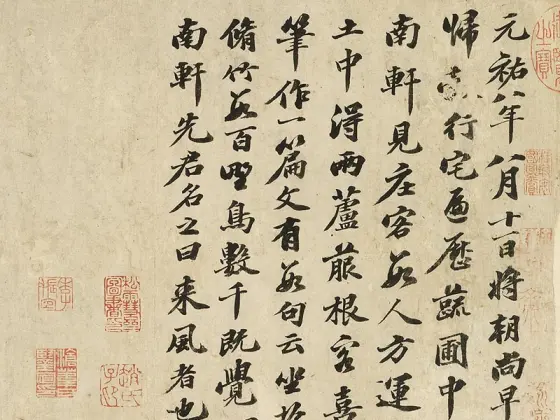 元祐八年八月十一日將朝尚早
歸行宅遍歷蔬圃中
南軒見庄客數人方運
土中得兩蘆菔根客喜
筆作一篇文有數句云坐於
脩竹數百野鳥數千既覺
南軒先君名之曰来風者也